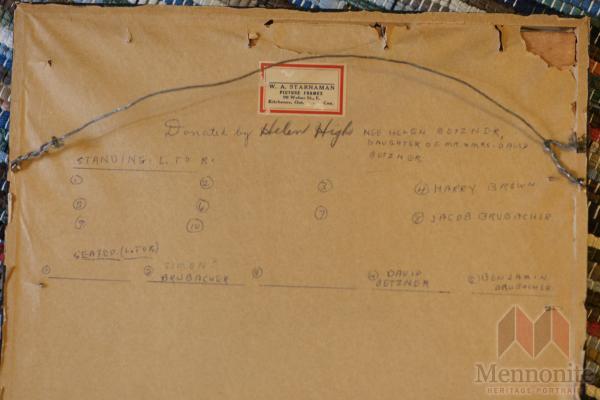 W. A. STARNAMAN
PICTURE FRAMES
Kitchener, Ont. Can.
Donated by Helen High NEE HELEN BETZNER,
DAUGHTER OF MR & MRS. DAVID
BETZNER
STANDING: L. TO R.
① ② ③ ④ HARRY BROWN
⑤ ⑥ ⑦ ⑧ JACOB BRUBACHER
⑨ ⑩
SEATED: (L. TO R.)
① ② SIMON ③ ④ DAVID ⑤ BENJAMIN
BRUBACHER BETZNER BRUBACHER
Mennonite
HERITAGE PORTRAIT